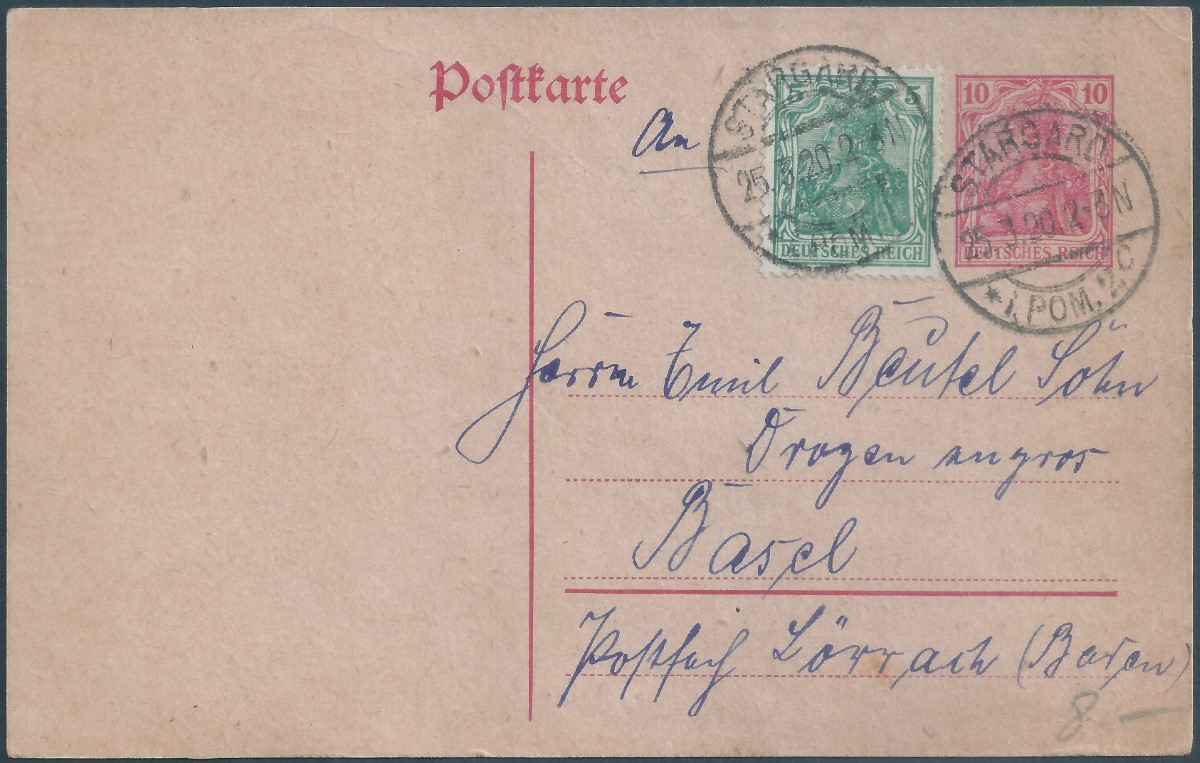 Postkarte
An
5 5
DEUTSCHES REICH
10 10
DEUTSCHES REICH
STARGARD
25.3.20.2-3N
* i. POM.
STARGARD
25.3.20.2-3N
* i. POM. 2.C
Herrn Emil Beutel Söhn
Drogen engros
Basel
Postfach Lörrach (Baden)
8 —